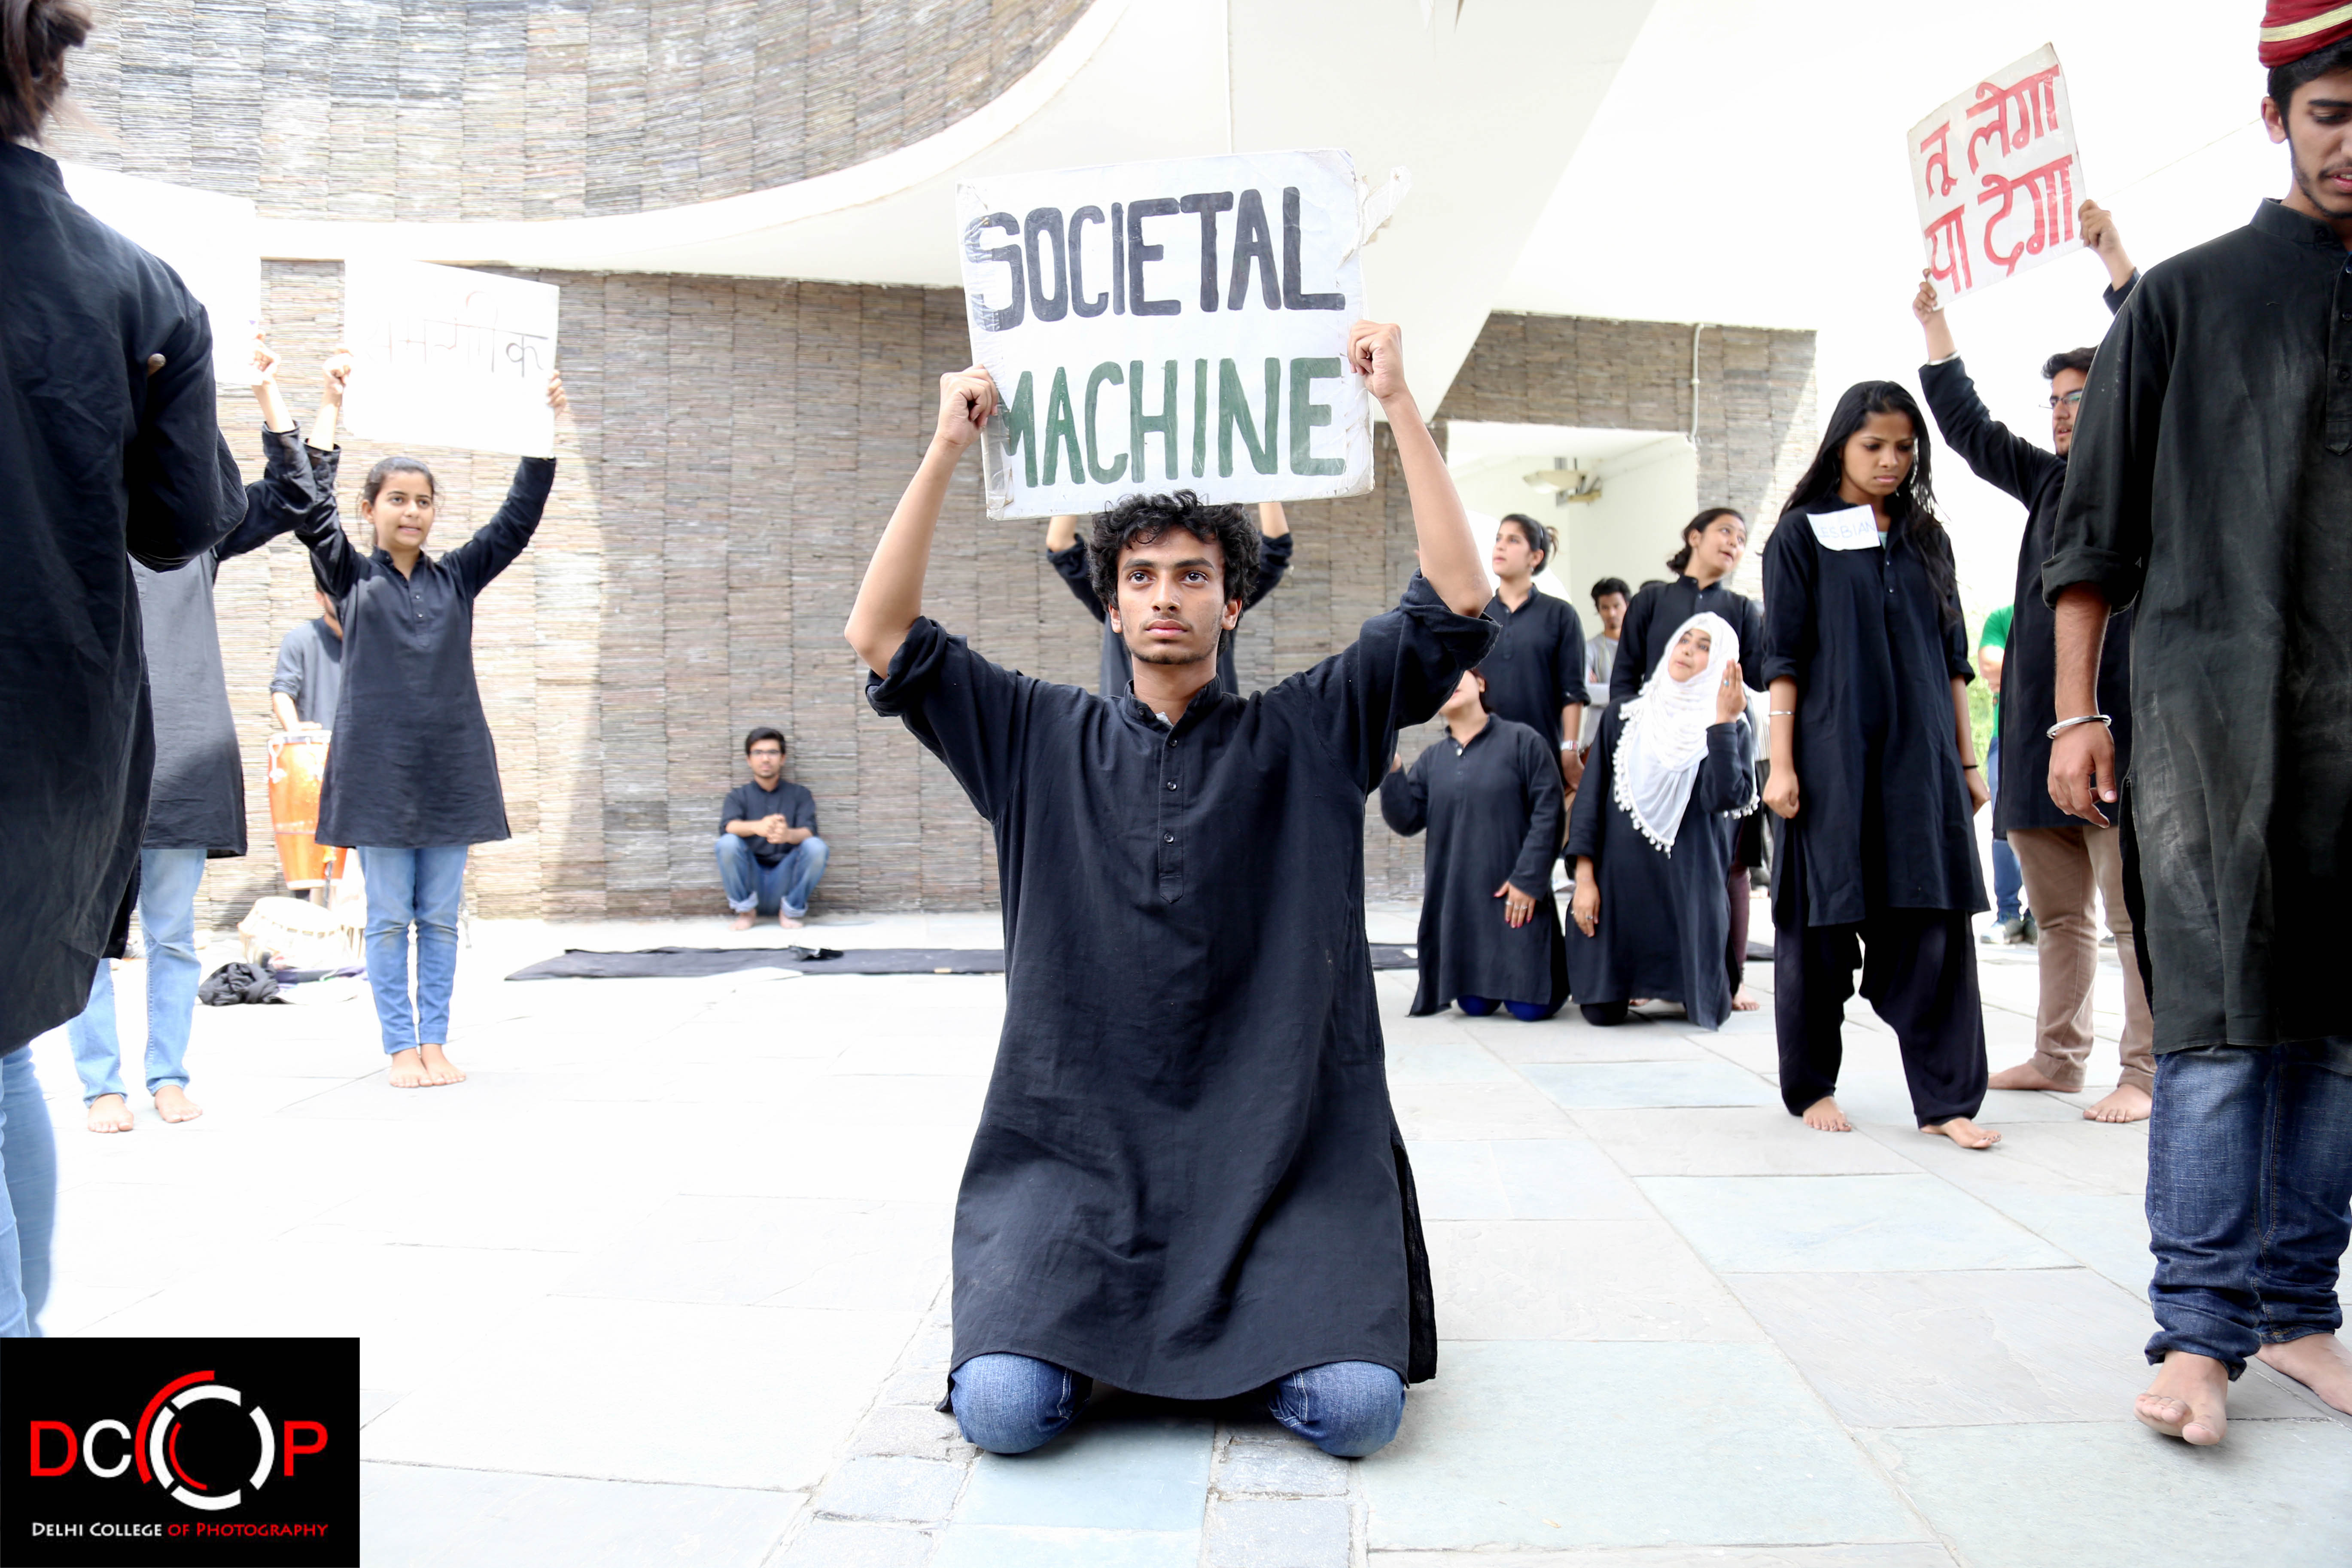 SOCIETAL
MACHINE
तू लेगा
या देगा
LESBIAN
DCOP
DELHI COLLEGE OF PHOTOGRAPHY